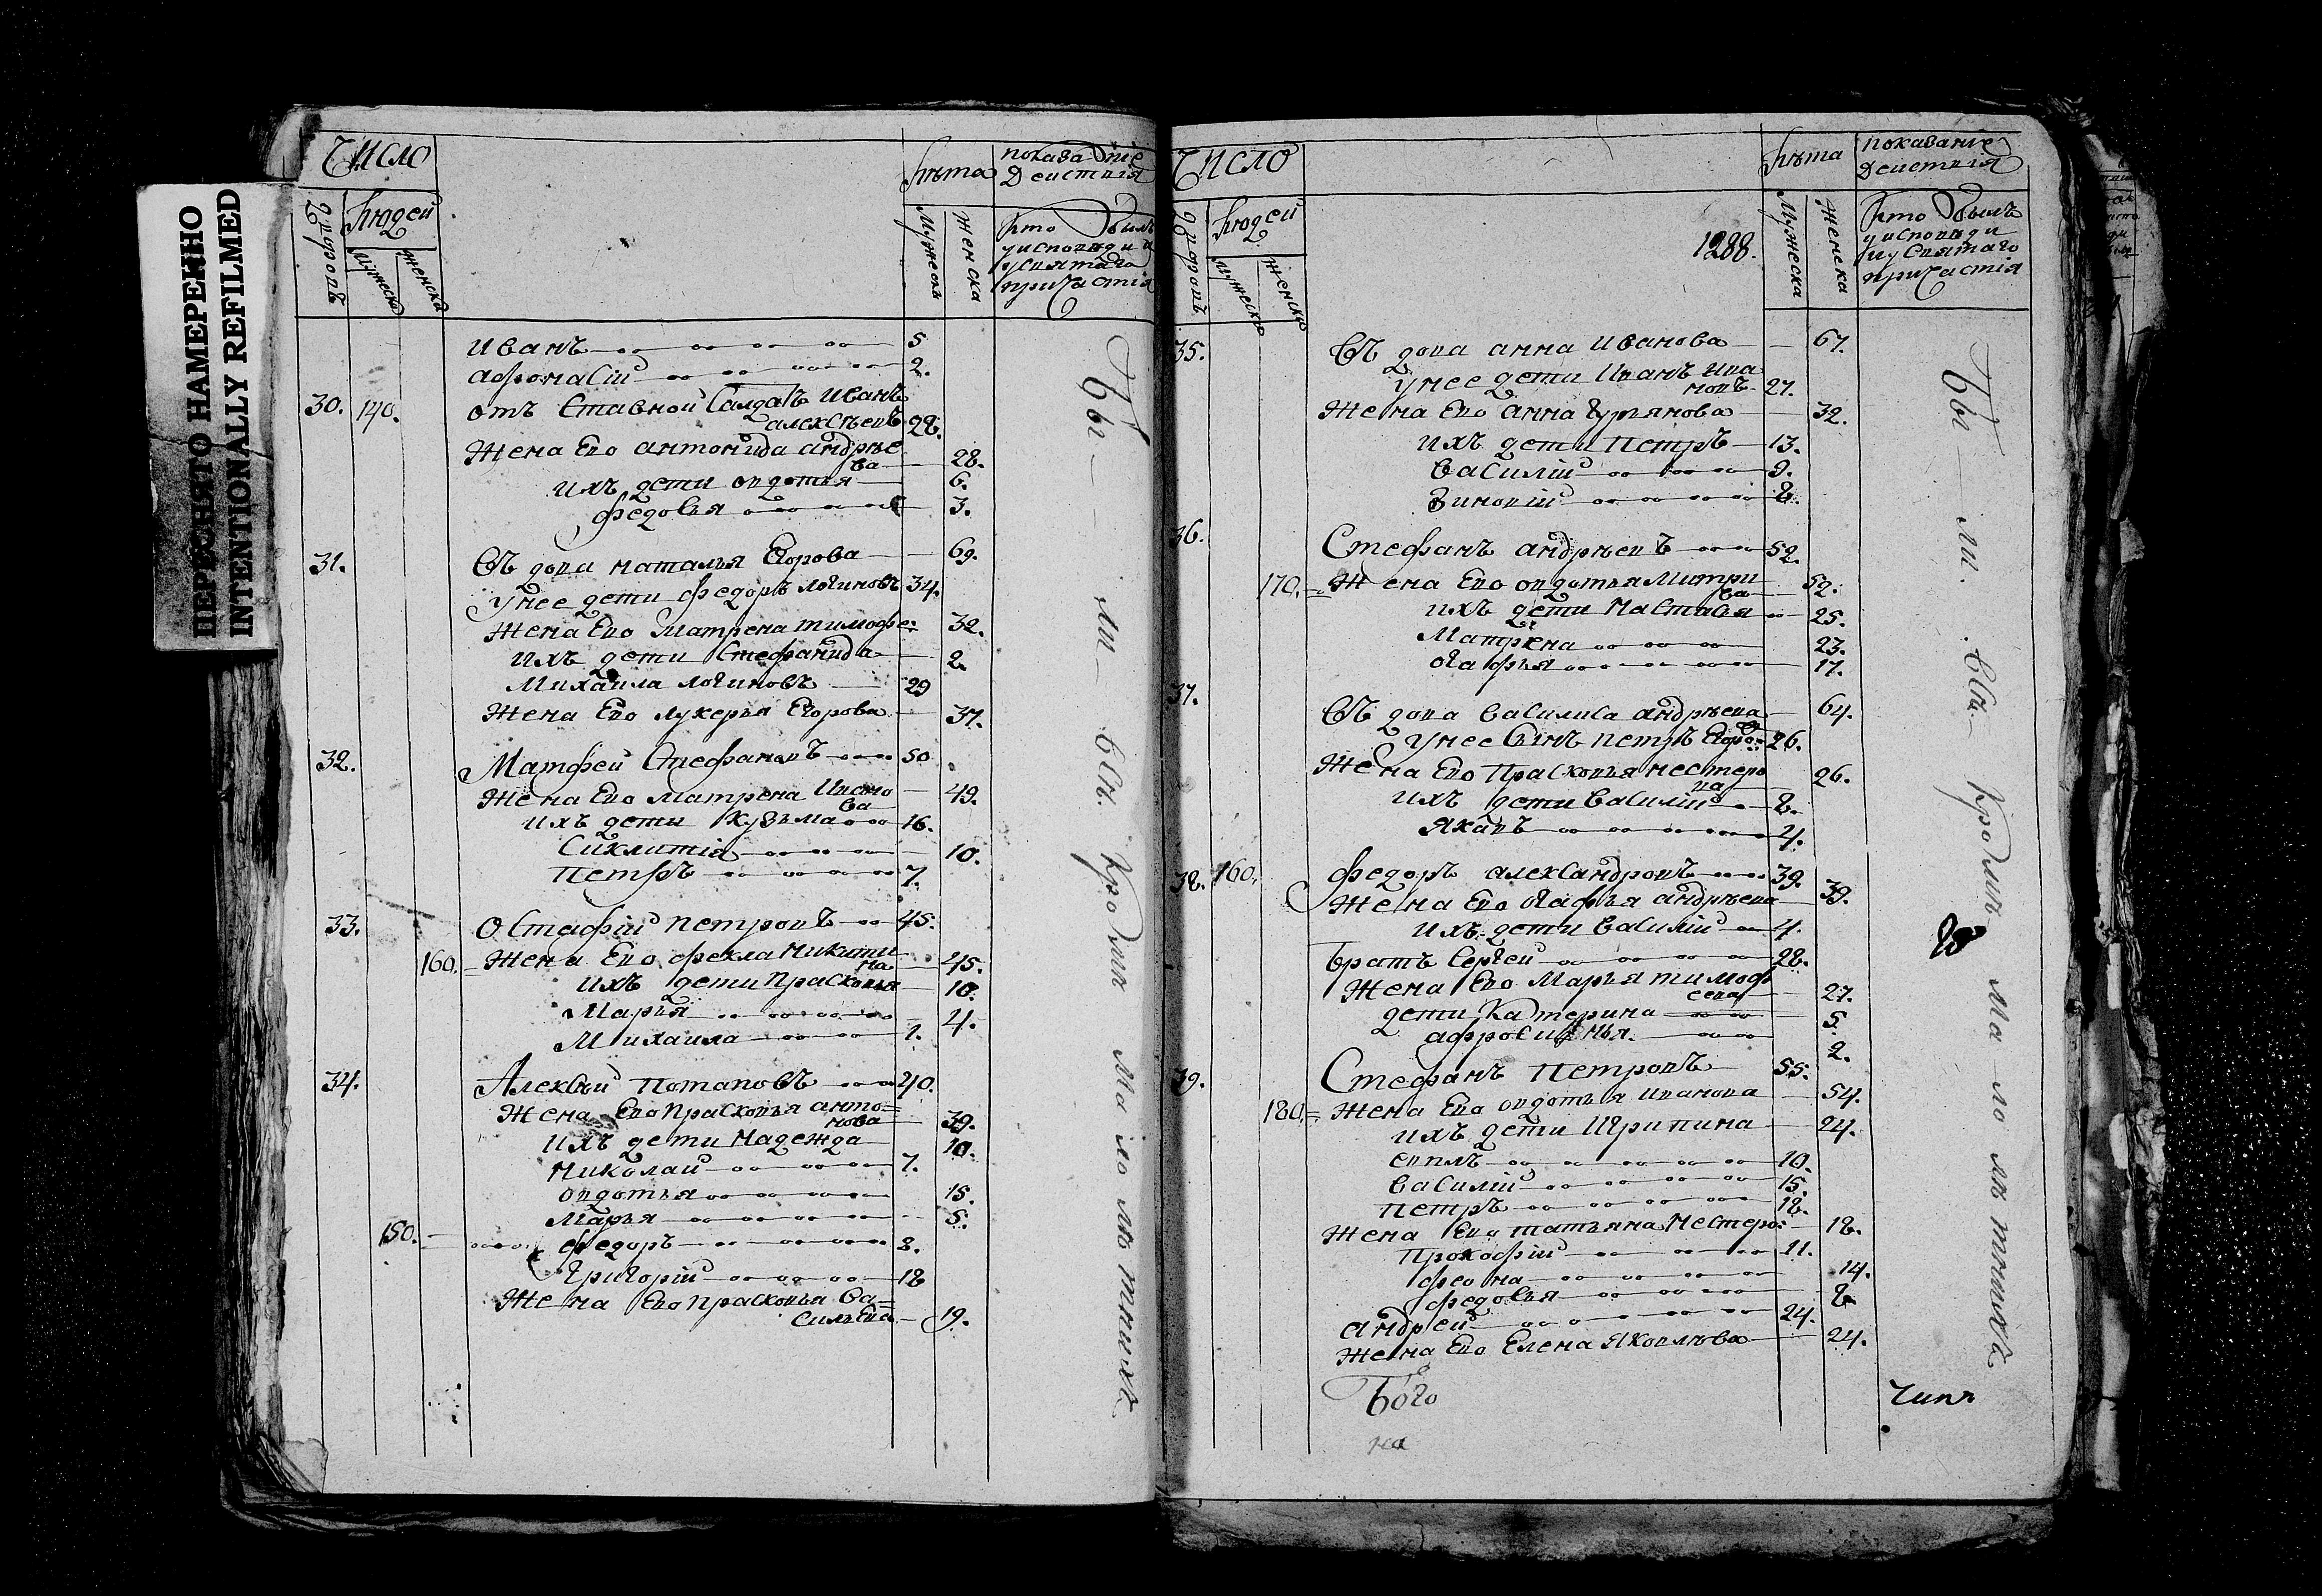 ПЕРЕСНЯТО НАМЕРЕННО
INTENTIONALLY REFILMED
Число
лѣта
показание
Действия
Дворовъ
Людей
Мужеска
Женска
Мужескъ
Женска
Кто былъ
у исповѣди и
у святаго
причастия
Иванъ 5
Афонасiй 2.
30. 140. отъ ставной Салдатъ Иванъ
алексѣевъ 28.
Жена Ево антонида андрѣе
ва 28.
ихъ дети овдотья 6.
федосья 3.
31. Вдова наталья Егорова 69.
У нее дети федоръ логиновъ 34.
Жена Ево Матрена тимофе: 32.
ихъ дети Стефанида 2.
Михаила логиновъ 29
Жена Ево лукерья Егорова 37.
32. Матфей Стефановъ 50
Жена Ево Матрена Ивано
ва 49.
ихъ дети Кузьма 16.
Сиклития 10.
Петръ 7.
33. Остафiй петровъ 45.
160. Жена Ево фекла Микити
на 45.
ихъ дети Прасковья 10.
Марья 4.
Михаила 1.
34. Алексѣй Потаповъ 40.
Жена Ево Прасковья анто=
нова 39.
ихъ дети Надежда 10.
Николай 7.
овдотья 15.
Марья 5.
150. федоръ 3.
Григорiй 18
Жена Ево прасковья Ва=
сильева 19.
Бы — ли — всѣ
Число
1288.
лѣта
показание
Действия
Дворовъ
Людей
Мужеска
Женска
Мужеска
Женска
Кто былъ
у исповѣди
и у Святаго
причастiя
35. Вдова анна Иванова 67.
У нее дети Иванъ Ива
новъ 27.
Жена Ево анна Гурьянова 32.
ихъ дети Петръ 13.
Василiй 9.
Зиновiй 8.
36. Стефанъ андрѣевъ 52.
170. Жена Ево овдотья Митри
ва 52.
ихъ дети Настасья 25.
Матрена 23.
Огафья 17.
37. Вдова Василиса андрѣева 64.
У нее сынъ петръ Егоро: 26.
Жена Ево Прасковья нестеро
ва 26.
ихъ дети Василiй 8.
Яковъ 4.
38. 160. федоръ александровъ 39.
Жена Ево Огафья андрѣева 39.
ихъ дети Василiй 4.
Братъ Сергей 28.
Жена Ево Марья тимоф
еева 27.
дети Катерина 5.
афросинья 2.
39. Стефанъ Петровъ 55.
180. Жена Ево овдотья иванова 54.
ихъ дети Огрипина 24.
10.
Василiй 15.
Петръ 18.
Жена Ево татьяна Нестеро: 18.
Прокофiй 11.
14.
федосья 8
андрей 24.
Жена Ево Елена Яковлева 24.
Бого
на
Бы — ли. всѣ